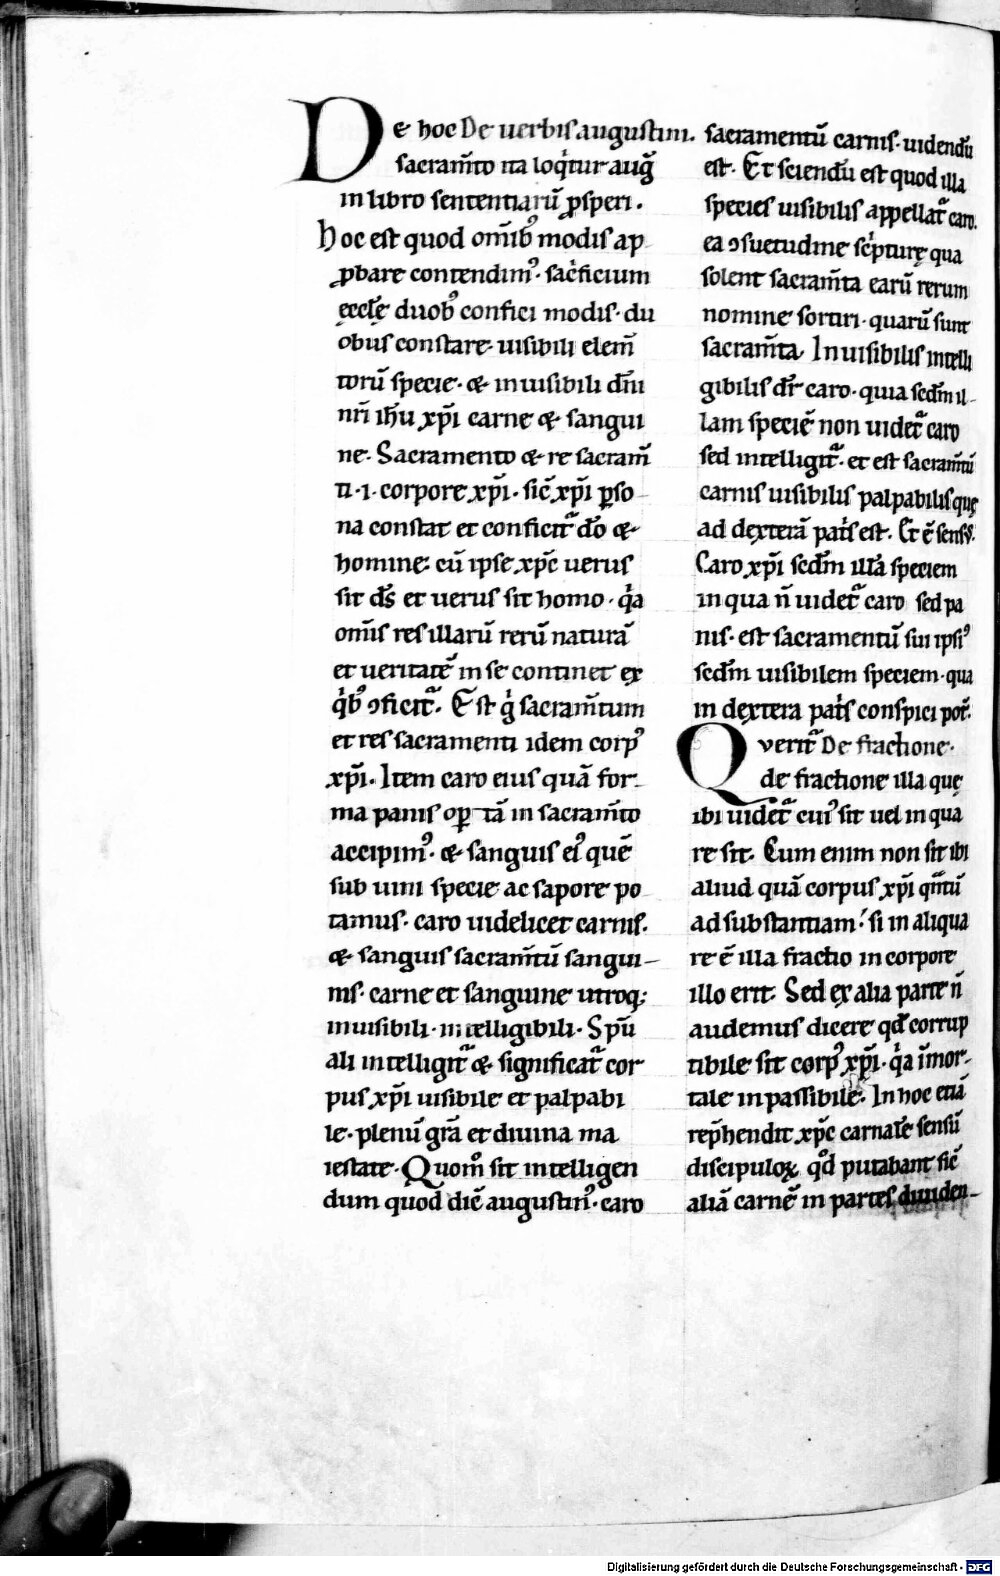 De hoc De uerbis augustini.
sacram̄to ita loq̇tur aug̃
in libro sententiarū ꝓsperi.
hoc est quod om̄ib⁹ modis ap
ꝓbare contendim⁹. sac̍ficium
ęcclę̄ duob⁹ confici modis. du
obus constare. uisibili elem̄
torū specie. & inuisibili dn̄i
nr̄i ih̄u xp̄i carne & sangui
ne. Sacramento & re sacram̄
ti .i. corpore xp̄i. sic̄ xp̄i ꝑso
na constat et conficitᷓ dō &
homine. cū ipse xp̄c uerus
sit ds̄ et uerus sit homo. q̍a
om̄is res illarū rerū naturā
et ueritatē in se continet ex
q̍b⁹ ↄficitᷓ. Est g̍ sacram̄tum
et res sacramenti idem corp⁹
xp̄i. Item caro eius quā for
ma panis oꝑtā in sacram̄to
accipim⁹. & sanguis ei⁹ quē
sub uini specie ac sapore po
tamus. caro uidelicet carnis.
& sanguis sacram̄tū sangui-
nis. carne et sanguine utroq;
inuisibili. intelligibili. Spū
ali intelligitᷓ & significatᷓ cor
pus xp̄i uisibile et palpabi
le. plenū gr̄a et diuina ma
iestate. Quom̊ sit intelligen
dum quod dic̄ augustin⁹. caro
sacramentū carnis. uidendū
est. Et sciendū est quod illa
species uisibilis appellatᷓ caro.
ea ↄsuetudine sc̍pturę qua
solent sacram̄ta earū rerum
nomine sortiri. quarū sunt
sacram̄ta. Inuisibilis intelli
gibilis dr̄ caro. quia scdm̄ il-
lam speciē non uidetᷓ caro
sed intelligitᷓ. et est sacram̄tū
carnis uisibilis palpabilis quę
ad dexterā pat̍s est. Et ē sens⁹.
Caro xp̄i scdm̄ illā speciem
in qua n̄ uidetᷓ caro sed pa
nis. est sacramentū sui ipsi⁹
scdm̄ uisibilem speciem. qua
in dextera pat̍s conspici pot̄.
Queritᷓ De fractione.
de fractione illa quę
ibi uidetᷓ cui⁹ sit uel in qua
re sit. Cum enim non sit ibi
aliud quā corpus xp̄i qᷓntū
ad substantiam. si in aliqua
re ē illa fractio in corpore
illo erit. Sed ex alia parte n̄
audemus dicere qđ corrup
tibile sit corp⁹ xp̄i. q̍a īmor-
tale inpassibile. In hoc etiā
rep̄hendit xp̄c carnalē sensū
discipuloꝝ qđ putabant sic̄
aliā carnē in partes diuiden-
Digitalisierung gefördert durch die Deutsche Forschungsgemeinschaft - DFG